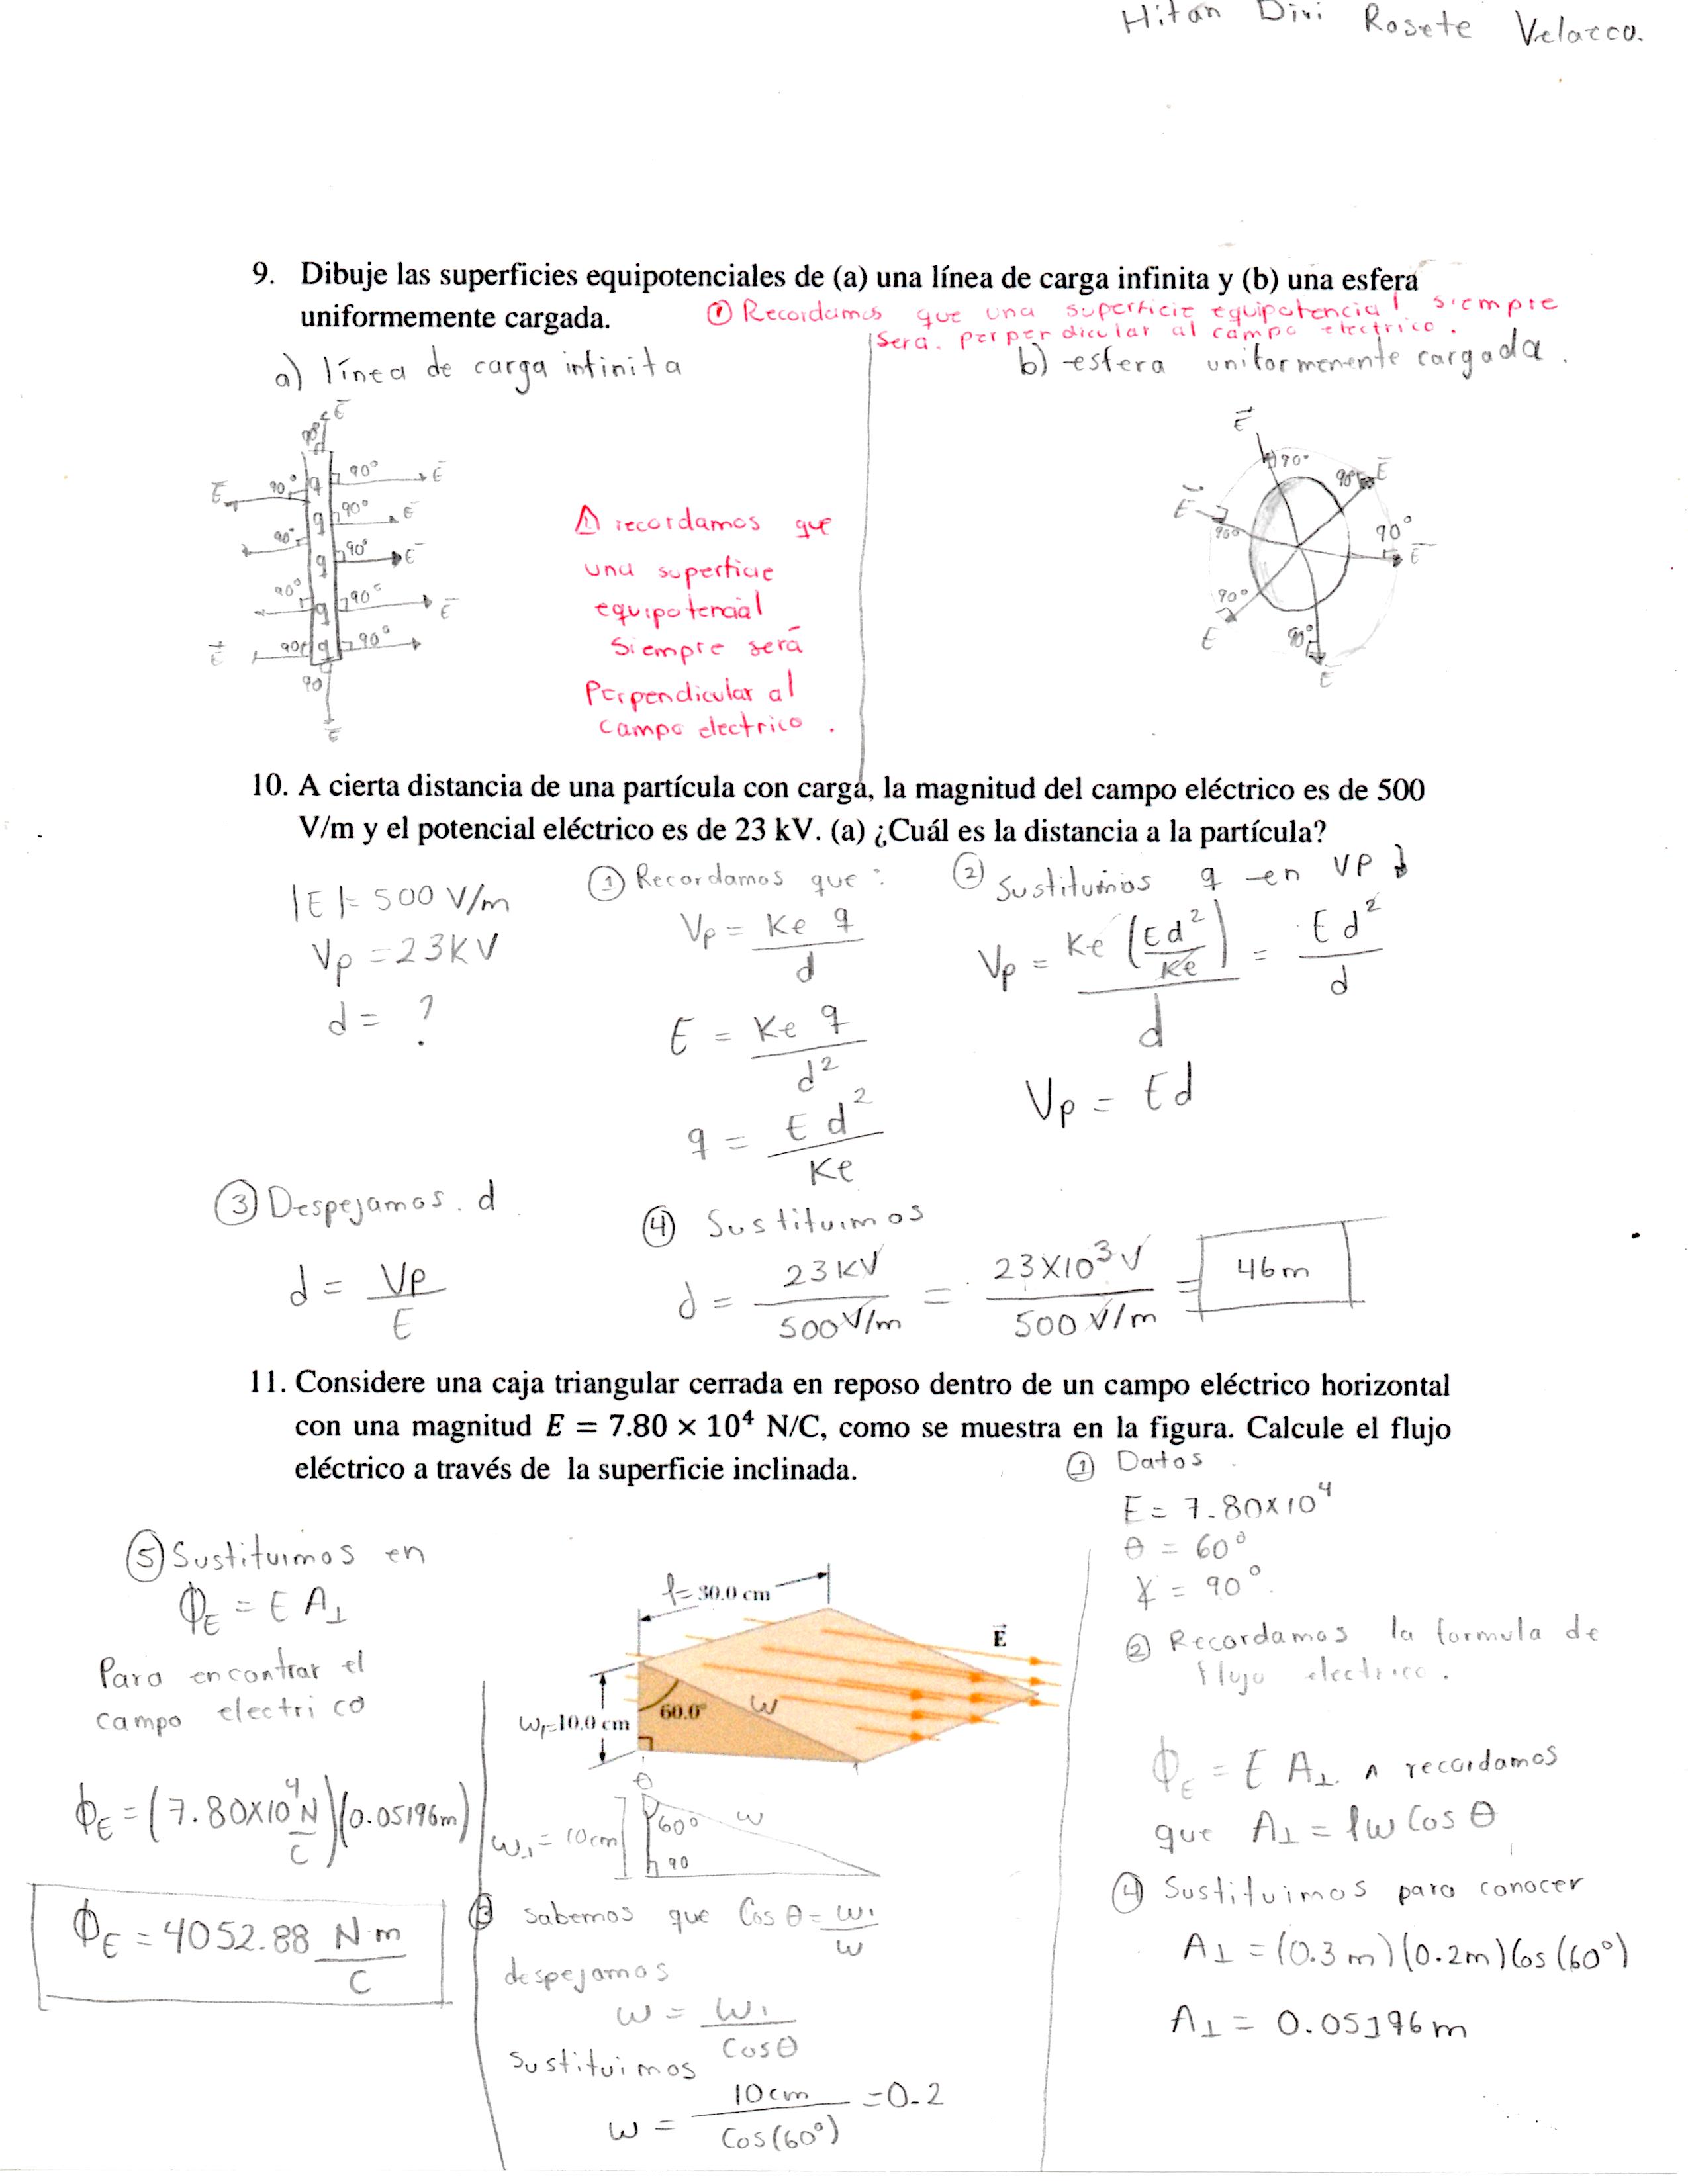 Hitan Divi Rosete Velazco.
9. Dibuje las superficies equipotenciales de (a) una línea de carga infinita y (b) una esfera
uniformemente cargada.
① Recordamos que una superficie equipotencial siempre
sera perpendicular al campo electrico.
a) línea de carga infinita
E
90°
E 90° q 90° E
q 90° E
90° q 90° E
90° q 90° E
E 90° q 90°
90
E
⚠ recordamos que
una superficie
equipotencial
Siempre será
Perpendicular al
campo electrico.
b) esfera uniformemente cargada.
E
90° 90° E
E 90° 90° E
90°
E 90°
E
10. A cierta distancia de una partícula con carga, la magnitud del campo eléctrico es de 500
V/m y el potencial eléctrico es de 23 kV. (a) ¿Cuál es la distancia a la partícula?
|E|= 500 V/m
Vp = 23KV
d = ?
① Recordamos que:
Vp = Ke q / d
E = Ke q / d²
q = E d² / Ke
② Sustituimos q en VP
Vp = Ke (Ed² / Ke) / d = Ed² / d
Vp = Ed
③ Despejamos. d
d = VP / E
④ Sustituimos
d = 23KV / 500V/m = 23X10³ V / 500 V/m = 46m
11. Considere una caja triangular cerrada en reposo dentro de un campo eléctrico horizontal
con una magnitud E = 7.80 × 10⁴ N/C, como se muestra en la figura. Calcule el flujo
eléctrico a través de la superficie inclinada.
① Datos
E = 7.80X10⁴
θ = 60°
γ = 90°.
② Recordamos la formula de
flujo electrico.
Φ_E = E A⊥ ∧ recordamos
que A⊥ = lw Cos θ
④ Sustituimos para conocer
A⊥ = (0.3 m)(0.2m)Cos(60°)
A⊥ = 0.05196m
l= 30.0 cm
E
60.0°
w
w₁=10.0 cm
θ
w₁ = 10cm
60°
w
90
③ Sabemos que Cos θ = w₁ / w
despejamos
w = w₁ / Cosθ
Sustituimos
w = 10cm / Cos(60°) = 0.2
⑤ Sustituimos en
Φ_E = E A⊥
Para encontrar el
campo electrico
Φ_E = (7.80X10⁴ N/C)(0.05196m)
Φ_E = 4052.88 N·m / C